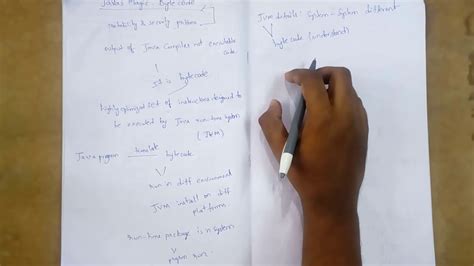 Java's Magic: Byte code
portability & security problems
output of Java Compiler not executable
code.
It is bytecode
highly optimized set of instructions designed to
be executed by Java run-time system
(JVM)
Java program translate bytecode.
run in diff environment
JVM install on diff
platforms.
run-time package in system
program run.
JVM details: System - System different
byte code (understand)